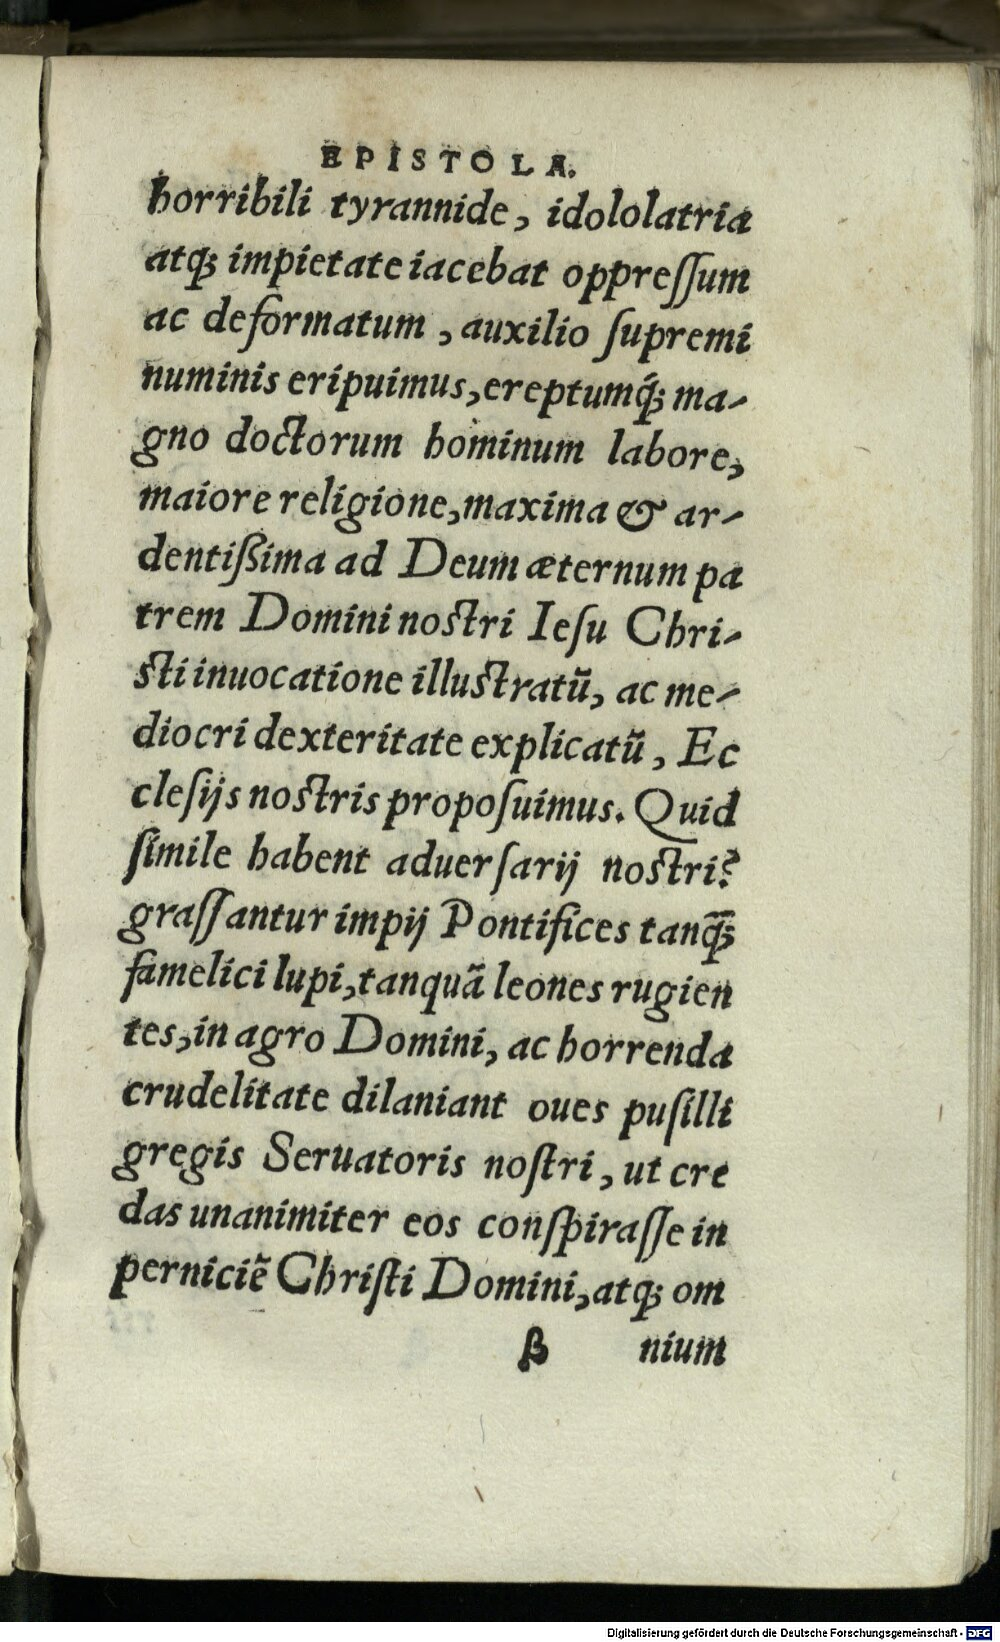 EPISTOLA.
horribili tyrannide, idololatria
atq; impietate iacebat oppreſſum
ac deformatum, auxilio ſupremi
numinis eripuimus, ereptumq́; ma-
gno doctorum hominum labore,
maiore religione, maxima & ar-
dentiſsima ad Deum æternum pa
trem Domini nostri Ieſu Chri-
sti inuocatione illustratũ, ac me-
diocri dexteritate explicatũ, Ec
cleſijs nostris propoſuimus. Quid
ſimile habent aduerſarij nostri?
graſſantur impij Pontifices tanq̃;
famelici lupi, tanquã leones rugien
tes, in agro Domini, ac horrenda
crudelitate dilaniant oues puſilli
gregis Seruatoris noſtri, ut cre
das unanimiter eos conſpiraſſe in
perniciẽ Chriſti Domini, atq; om
β nium
Digitalisierung gefördert durch die Deutsche Forschungsgemeinschaft - DFG